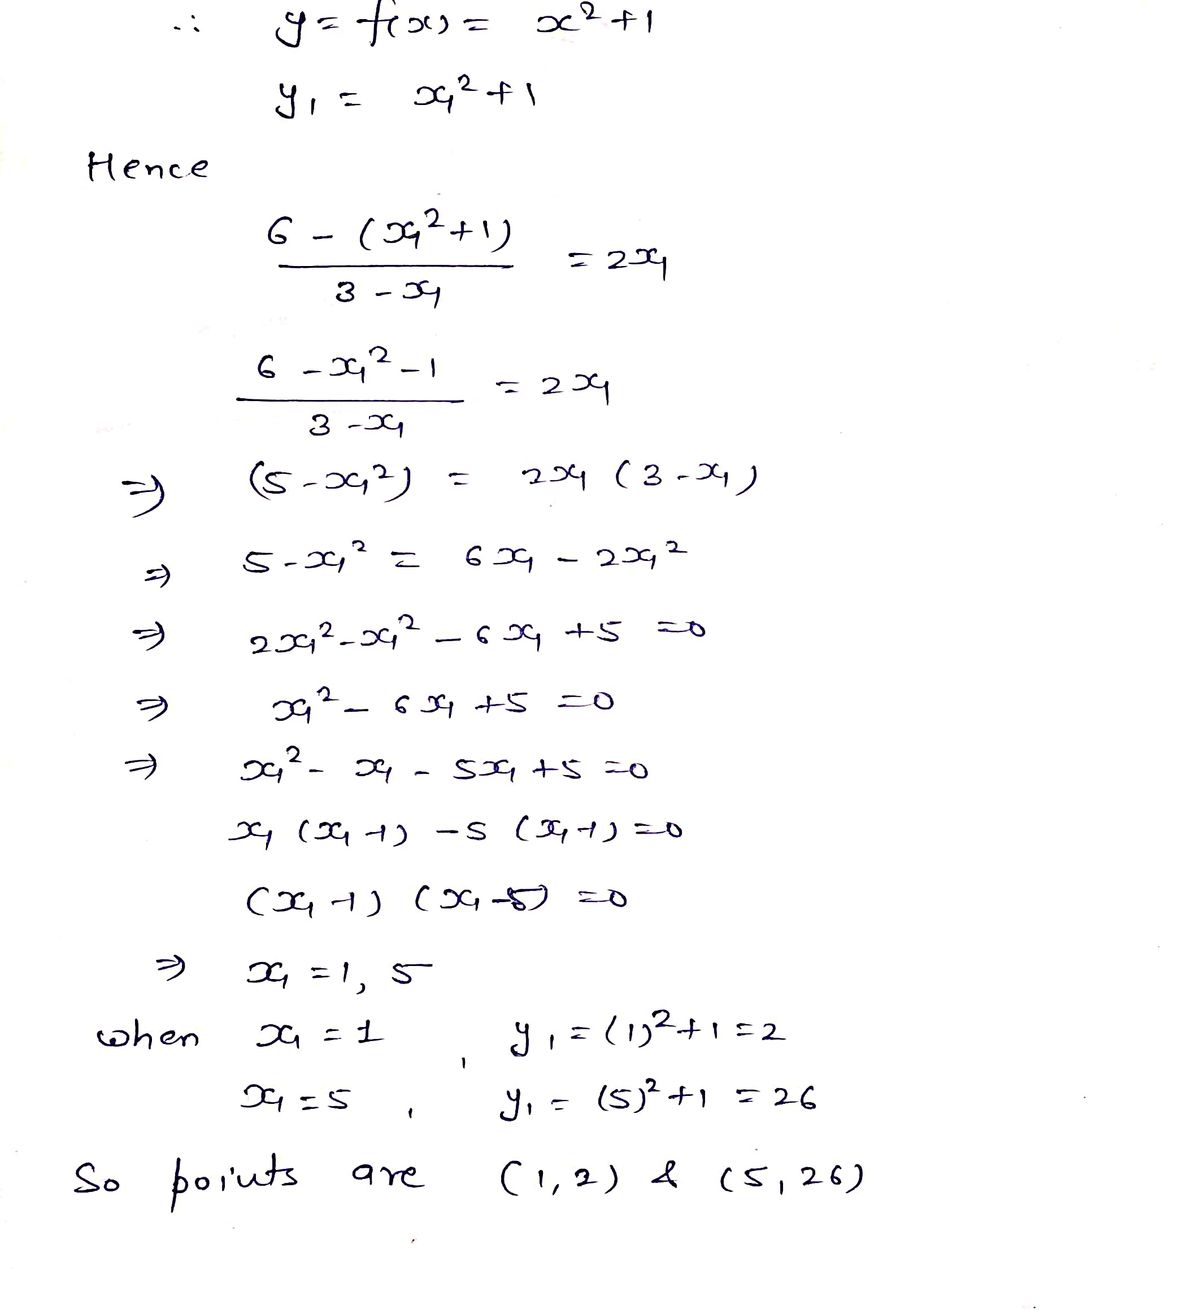 ∴ y = f(x) = x²+1
y₁ = x₁²+1
Hence
6 - (x₁²+1) / 3 - x₁ = 2x₁
6 - x₁² - 1 / 3 - x₁ = 2x₁
⇒ (5 - x₁²) = 2x₁ (3 - x₁)
⇒ 5 - x₁² = 6x₁ - 2x₁²
⇒ 2x₁² - x₁² - 6x₁ + 5 = 0
⇒ x₁² - 6x₁ + 5 = 0
⇒ x₁² - x₁ - 5x₁ + 5 = 0
x₁ (x₁ -1) - 5 (x₁ -1) = 0
(x₁ -1) (x₁ -5) = 0
⇒ x₁ = 1, 5
when x₁ = 1 , y₁ = (1)²+1 = 2
x₁ = 5 , y₁ = (5)²+1 = 26
So points are (1,2) & (5,26)